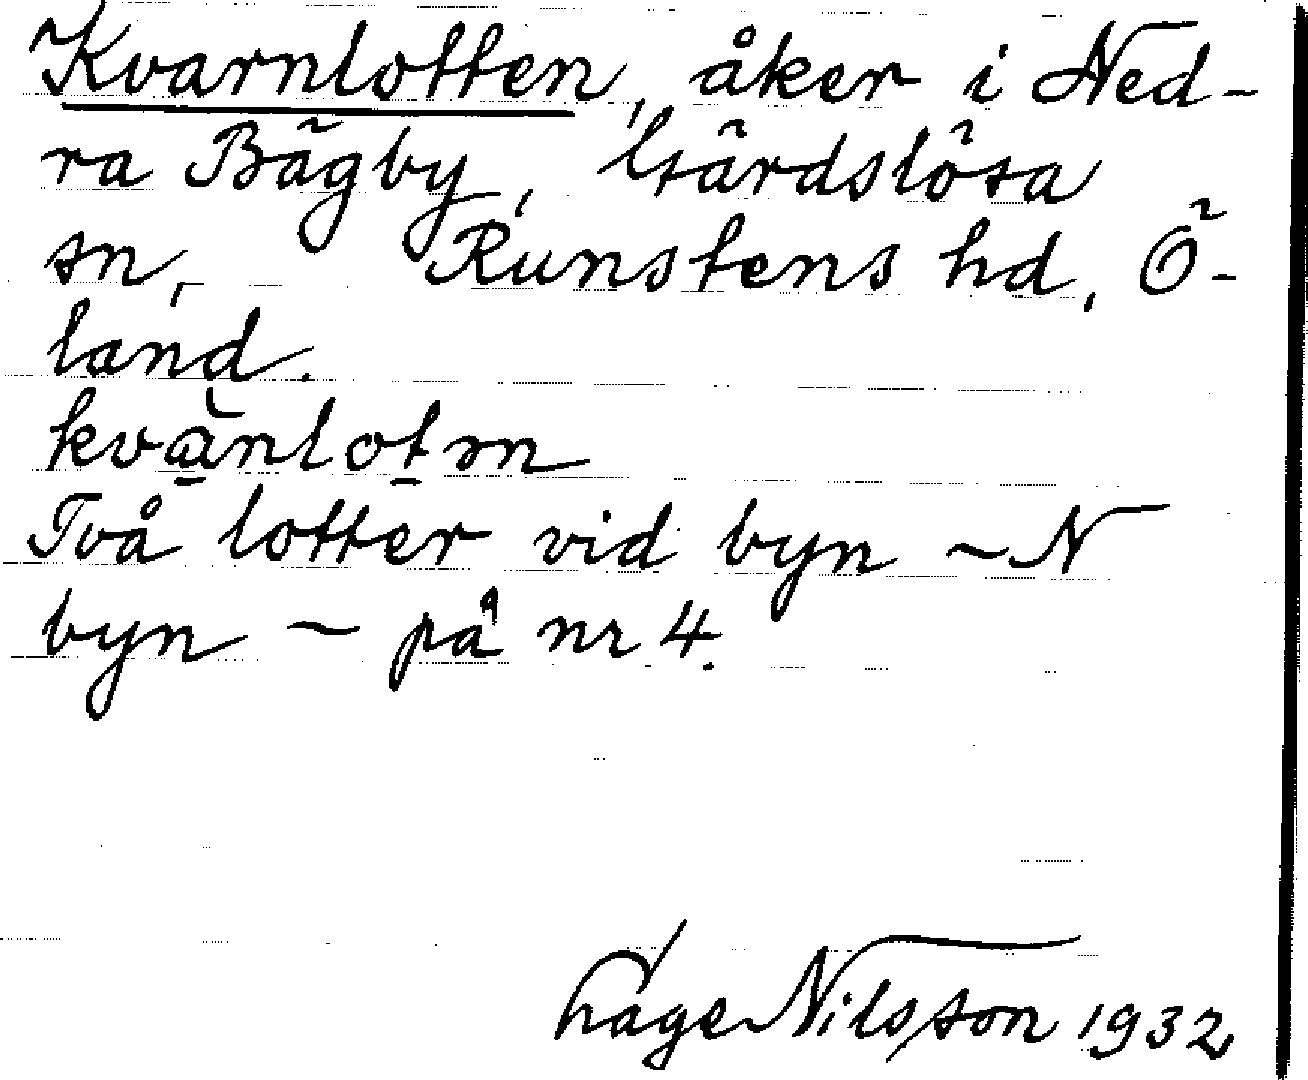 Kvarnlotten, åker i Ned-
ra Bägby, Gärdslösa
sn, Runstens hd, Ö-
land.
kvànlotən
Två lotter vid byn ~ N
byn ~ på nr 4.
Åge Nilsson 1932